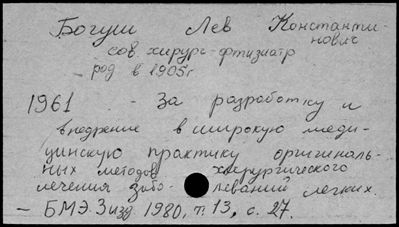 Богуш Лев Константи-
нович
сов. хирург-фтизиатр
род в 1905г
1961 - За разработку и
внедрение в широкую меди-
цинскую практику оригиналь-
ных методов хирургического
лечения забо- леваний легких.
- БМЭ. 3 изд 1980, т. 13, с. 27.